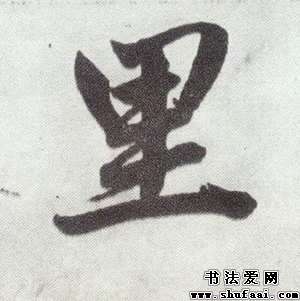 里
书法爱网
www.shufaai.com